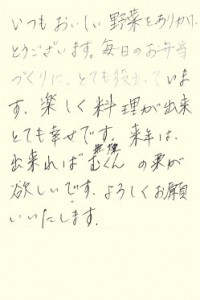 いつもおいしい野菜をありがとうございます。毎日のお弁当
づくりに、とても役立っていま
す。楽しく料理が出来
とても幸せです。来年は、
出来れば 無煙 むくん の栗が
欲しいです。よろしくお願
いいたします。